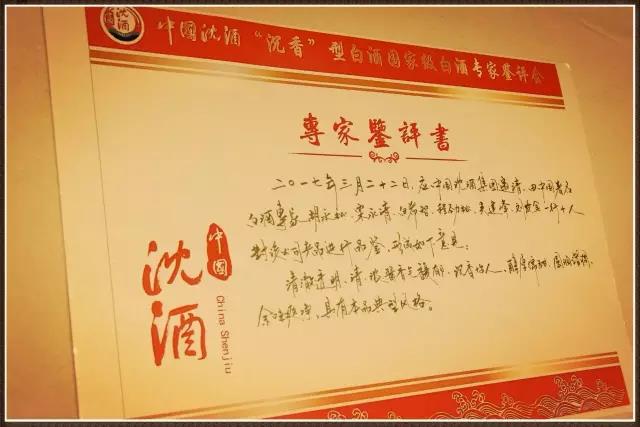 沈酒
中國沈酒“沉香”型白酒国家级白酒专家鉴评会
專家鑒評書
二〇一七年三月二十二日，应中国沈酒集团邀请，由中国著名
白酒专家胡永松、 一行十人
对该公司产品进行品鉴，形成如下意见：
清澈透明，清、浓酱香 沉香怡人，醇厚绵甜、
余味爽净，具有本品典型风格。
中國
沈酒
China Shenjiu